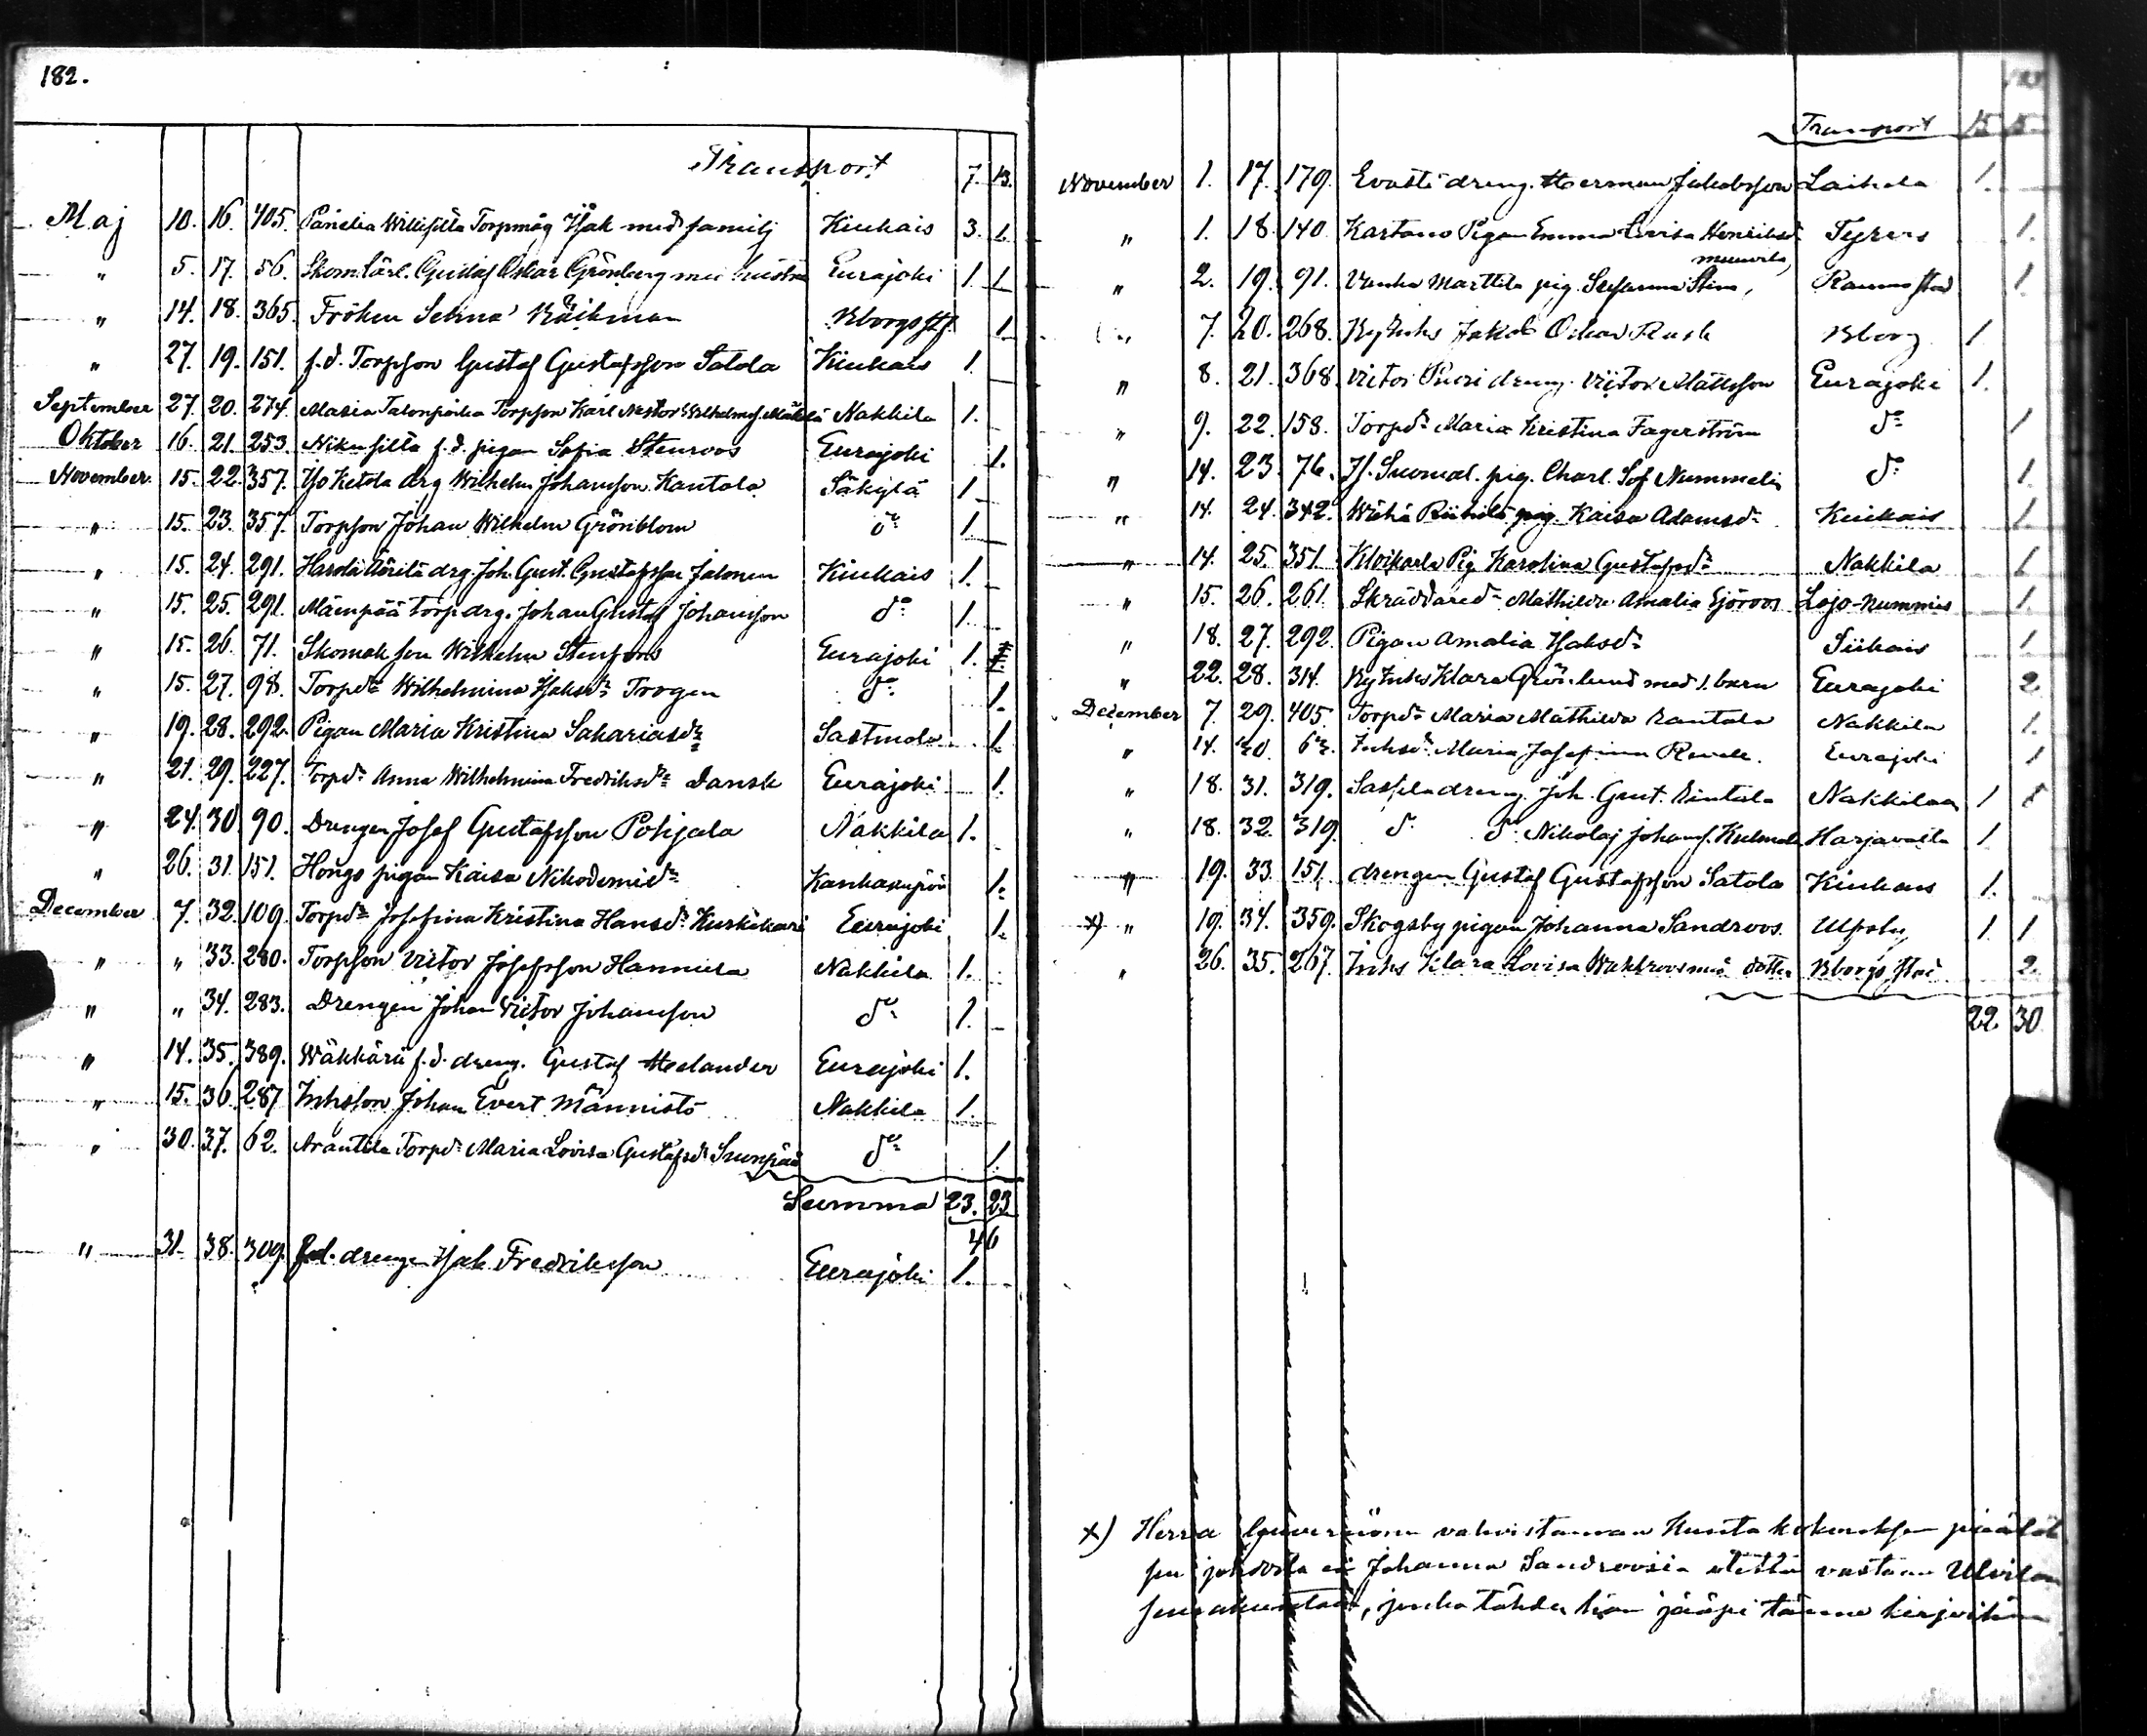 182.
Transport 7. 13.
Maj 10. 16. 405. Panelia Torpmåg Isak med familj Kiukais 3. 1.
" 5. 17. 56. Gustaf Oskar Grönberg med hustru Eurajoki 1. 1.
" 14. 18. 365. Fröken Selma Bborgs st. 1.
" 27. 19. 151. f.d. Torpson Gustaf Gustafsson Satola Kiukais 1.
September 27. 20. 274. Masia Talonpoika Torpson Karl Nestor Wilhelmss. Nakkila 1.
Oktober 16. 21. 253. f.d. pigan Sofia Stenroos Eurajoki 1.
November. 15. 22. 357. Yso Ketola drg Wilhelm Johansson Kantola Säkylä 1.
" 15. 23. 357. Torpson Johan Wilhelm Grönblom do 1.
" 15. 24. 291. drg. Joh. Gust. Gustafsson Jalonen Kiukais 1.
" 15. 25. 291. Mämpää torp drg. Johan Gustaf Johansson do 1.
" 15. 26. 71. Skomak son Wilhelm Eurajoki 1.
" 15. 27. 98. Torpdr Wilhelmina Isaksdr Trogen do 1.
" 19. 28. 292. Pigan Maria Kristina Sakariasdr Sastmola 1.
" 21. 29. 227. Torpdr Anna Wilhelmina Fredriksdr Dansk Eurajoki 1.
" 24. 30. 90. Drengen Josef Gustafsson Pohjala Nakkila 1.
" 26. 31. 151. Hongo pigan Kaisa Nikodemidr Kankaanpää 1.
December 7. 32. 109. Torpdr Josefina Kristina Hansdr Kuskikari Eurajoki 1.
" " 33. 280. Torpson Victor Josefsson Hannula Nakkila 1.
" " 34. 283. Drengen Johan Victor Johansson do 1.
" 14. 35. 389. Wäkkärä f.d. dreng. Gustaf Helander Eurajoki 1.
" 15. 36. 287 Inhsson Johan Evert Männistö Nakkila 1.
" 30. 37. 62. Arantila Torpdr Maria Lovisa Gustafsdr Suonpää do 1.
Summa 23. 23
46
" 31. 38. 309. drengen Isak Fredriksson Eurajoki 1.
Transport 15 15
November 1. 17. 179. Evasti dreng. Herman Jakobsson Laihela 1.
" 1. 18. 140. Kartano Pigan Emma Lovisa Henriksdr Tyrvis 1.
" 2. 19. 91. Vanha Marttila pig. Stina, Raumo stad 1.
7. 20. 268. Jakob Oskar Rusk Bborg 1
" 8. 21. 368. Victor dreng. Victor Mattsson Eurajoki 1.
" 9. 22. 158. Torpdr Maria Kristina Fagerström do 1
" 14. 23. 76. Suomal. pig. Charl. Sof Nummelin do 1.
" 14. 24. 342. Wähä Riihilä pig. Kaisa Adamsdr Kiukais 1
" 14. 25. 351. Pig Karolina Gustafsdr Nakkila 1
" 15. 26. 261. Skräddaredr Mathilda Amalia Sjöroos Lojo-Nummis 1.
" 18. 27. 292. Pigan Amalia Isaksdr Siikais 1
" 22. 28. 314. Klara Grönlund med 1. barn Eurajoki 2
December 7. 29. 405. Torpdr Maria Mathilda Rantala Nakkila 1.
" 14. 30. 63. Inhsdr Maria Josefina Eurajoki 1
" 18. 31. 319. dreng. Joh. Gust. Rintala Nakkilaan 1
" 18. 32. 319. do do Nikolaj Johans. Harjavalta 1
" 19. 33. 151. drengen Gustaf Gustafsson Satola Kiukais 1.
x) " 19. 34. 359. Skogsby pigan Johanna Sandroos. Ulfsby 1. 1
" 26. 35. 267. Inhs Klara Lovisa dotter Bborgs stad 2.
22. 30
x) Herra vahvistaman Kuntakokouksen päätök
sen johdosta ei Johanna Sandroosia otettu vastaan Ulvilan
seurakuntaan, jonka tähden hän jääpi tänne kirjoihin